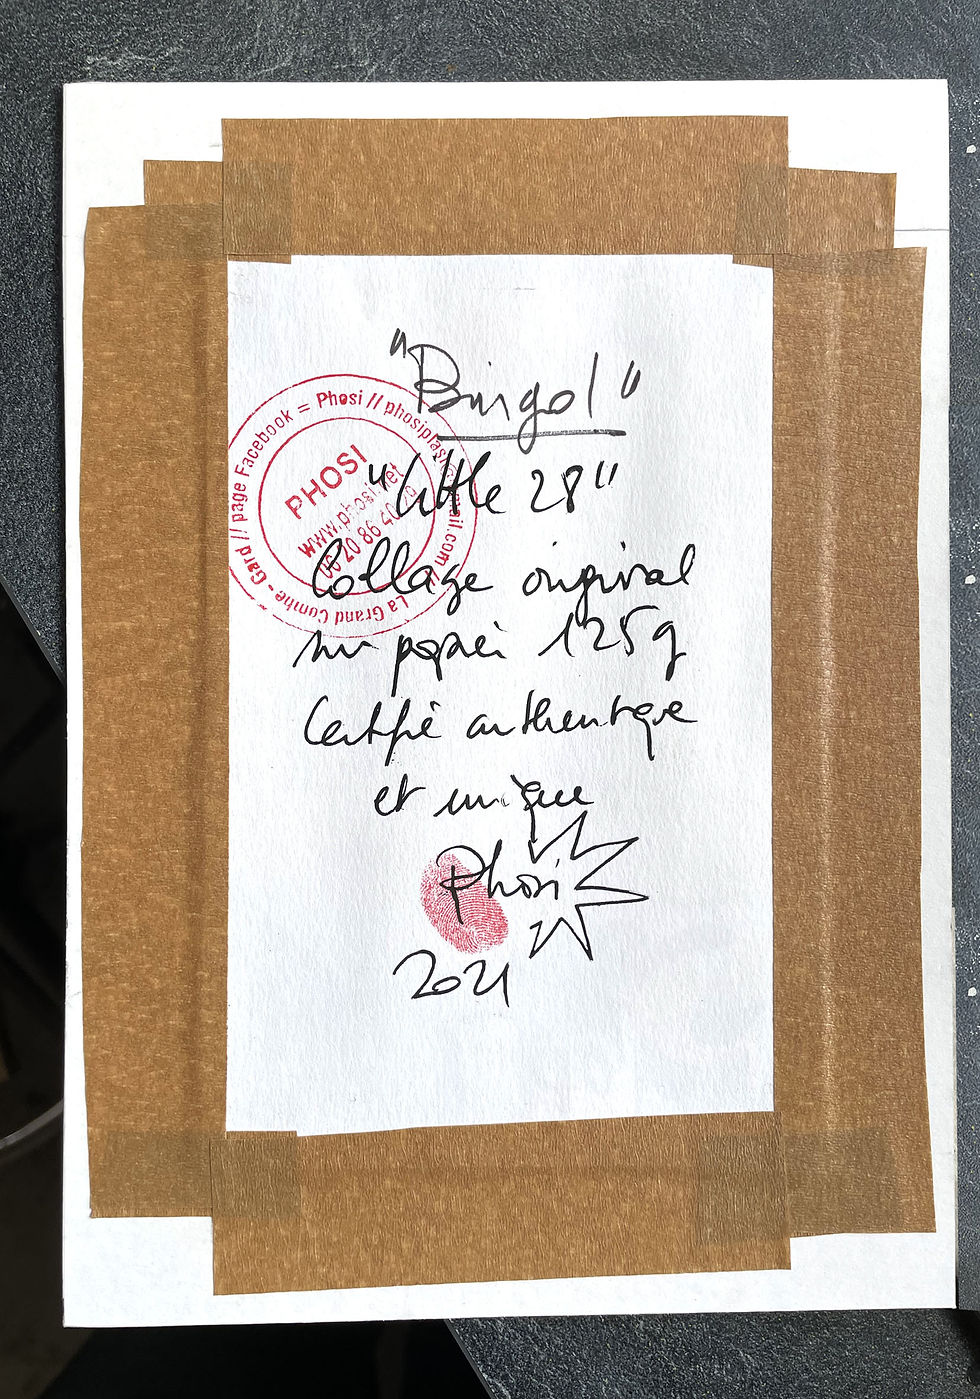 "Bingo!"
"Little 28"
Collage original
sur papier 125g
Certifié authentique
et unique
Phosi
2021
La Grand Combe - Gard // page Facebook = Phosi // phosiplash@gmail.com //
PHOSI
www.phosi.net
06 20 86 40